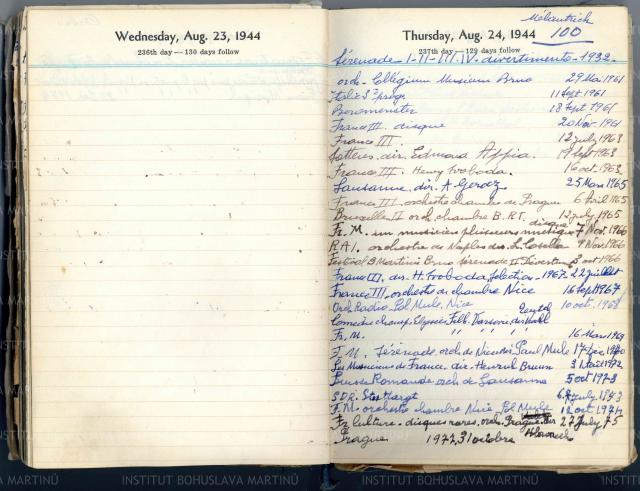 Wednesday, Aug. 23, 1944
236th day — 130 days follow
Mélantrich
100
Thursday, Aug. 24, 1944
237th day — 129 days follow
Sérenade I-II-III-IV. divertimento-1932
orch. Collegium Musicum Brno 29 Mai 1961
Italie 3e progr. 11 Sept 1961
Beromunster 18 Sept 1961
France III. disque 20 Nov. 1961
France III 12 july 1963
dir. Edmond Appia. 19 Sept 1963
France III. Henry Swoboda. 16 oct. 1963
Lausanne, dir. A Gerecz 25 Mars 1965
France III orchestre chambre de Prague 6 Avril 1965
Bruxelles II orch. chambre B.R.T. 12 july 1965
Fr. M. un musicien plusieurs musiques disque 7 Nov. 1966
R.A.I. orchestre de Naples dir. 9 Nov 1966
Festival B Martinů Brno Sérénade II Divertim. 3 oct 1966
France III. dir. H. Swoboda, Selection 1967. 22
France III, orchestre de chambre Nice 16 Sept 1967
Orch Radio Pol Mule. Nice 10 oct. 1968
Comédie champ. Elysées
Fr. M. 16 Mars 1969
F. M. Sérenade, orch. de Nice dir. Paul Mule 17
Les Musiciens de France, dir. 1972
Suisse Romande orch de Lausanne 5 oct 1973
S.D.R. july 1973
F. M. orchestre chambre Nice Pol Mule 12 oct 1974
Fr. Culture. disques rares, orch. Prague. dir 27 july 75
Prague 1977, 31 octobre Hlavacek
INSTITUT BOHUSLAVA MARTINŮ
INSTITUT BOHUSLAVA MARTINŮ